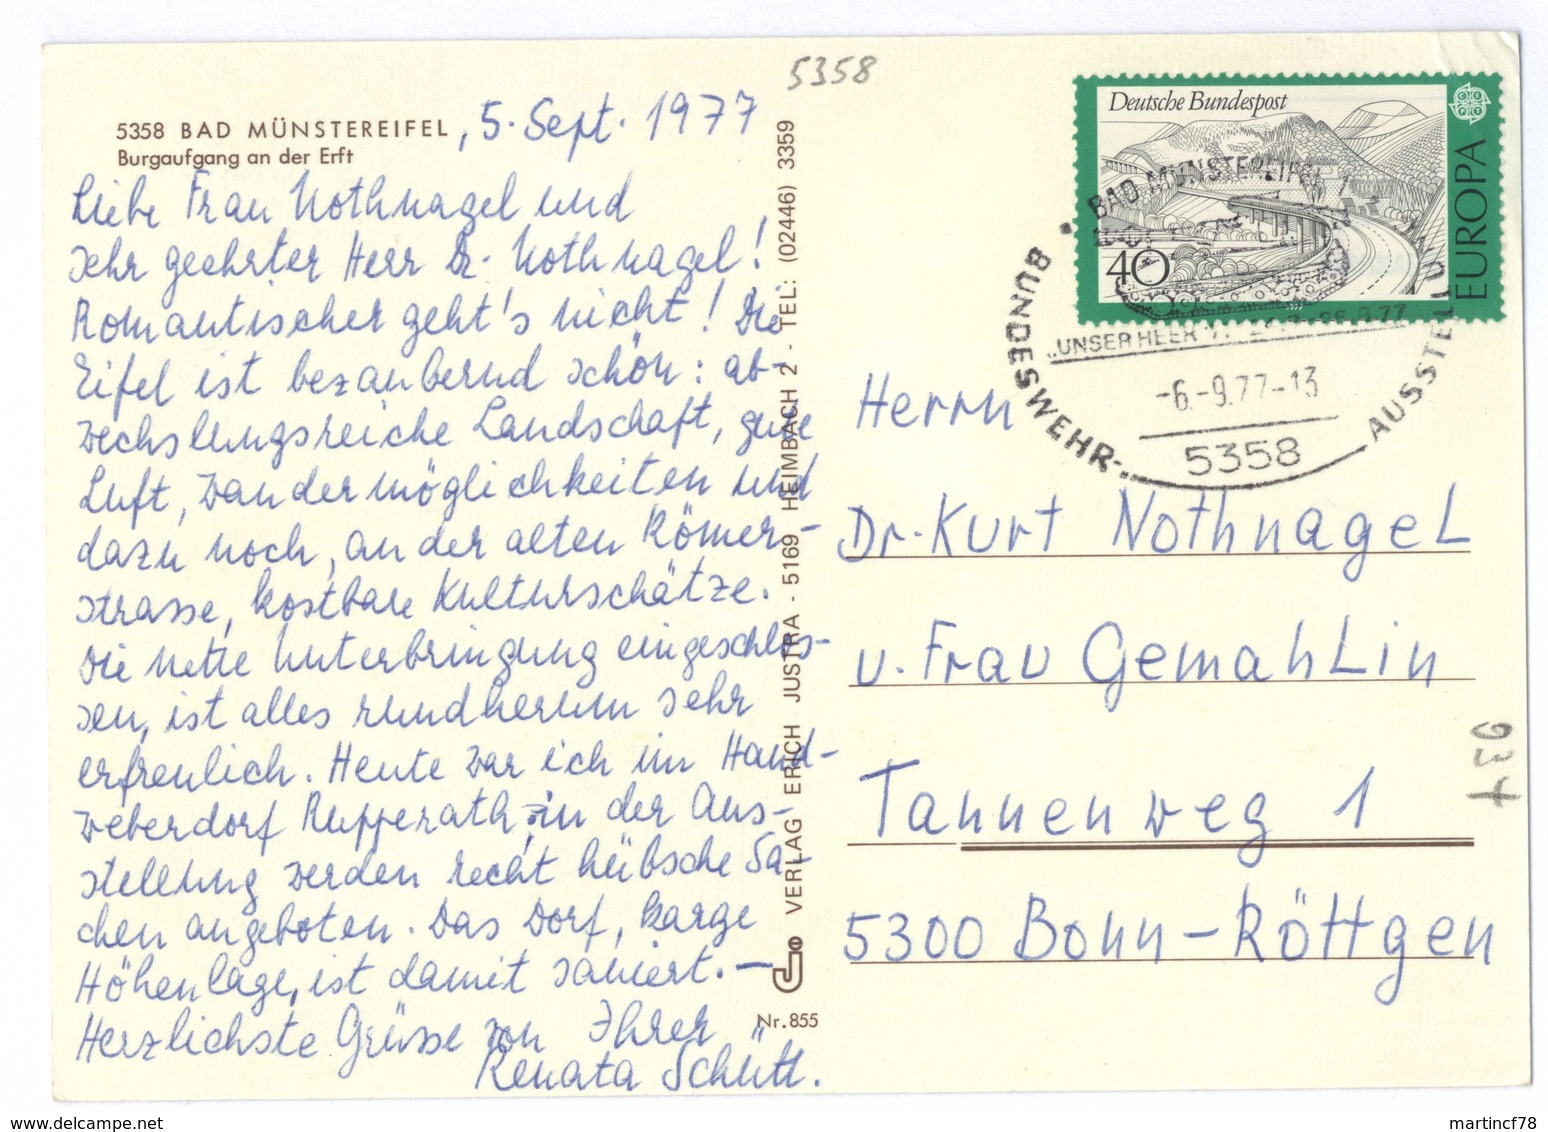 5358
5358 BAD MÜNSTEREIFEL, 5. Sept. 1977
Burgaufgang an der Erft
Liebe Frau Nothnagel und
sehr geehrter Herr Dr. Nothnagel!
Romantischer geht's nicht! Die
Eifel ist bezaubernd schön: ab-
wechslungsreiche Landschaft, gute
Luft, Wandermöglichkeiten und
dazu noch, an der alten Römer-
strasse, kostbare Kulturschätze.
Die nette Unterbringung eingeschlos-
sen, ist alles rundherum sehr
erfreulich. Heute war ich im Hand-
weberdorf Rupperath, in der Aus-
stellung werden recht hübsche Sa-
chen angeboten. Das Dorf, karge
Höhenlage, ist damit saniert. —
Herzlichste Grüsse von Ihrer
Renata Schütt.
VERLAG ERICH JUSTRA - 5169 HEIMBACH 2 - TEL: (02446) 3359
Nr. 855
Deutsche Bundespost
40
EUROPA
BAD MÜNSTEREIFEL
„UNSER HEER
-6.-9.77-13
5358
BUNDESWEHR-
Herrn
Dr. Kurt Nothnagel
u. Frau Gemahlin
Tannenweg 1
5300 Bonn-Röttgen
www.delcampe.net
martincf78